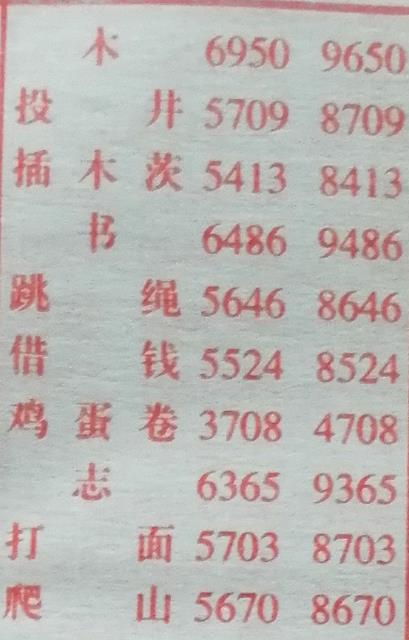 木 6950 9650
投井 5709 8709
插木茨 5413 8413
书 6486 9486
跳绳 5646 8646
借钱 5524 8524
鸡蛋卷 3708 4708
志 6365 9365
打面 5703 8703
爬山 5670 8670